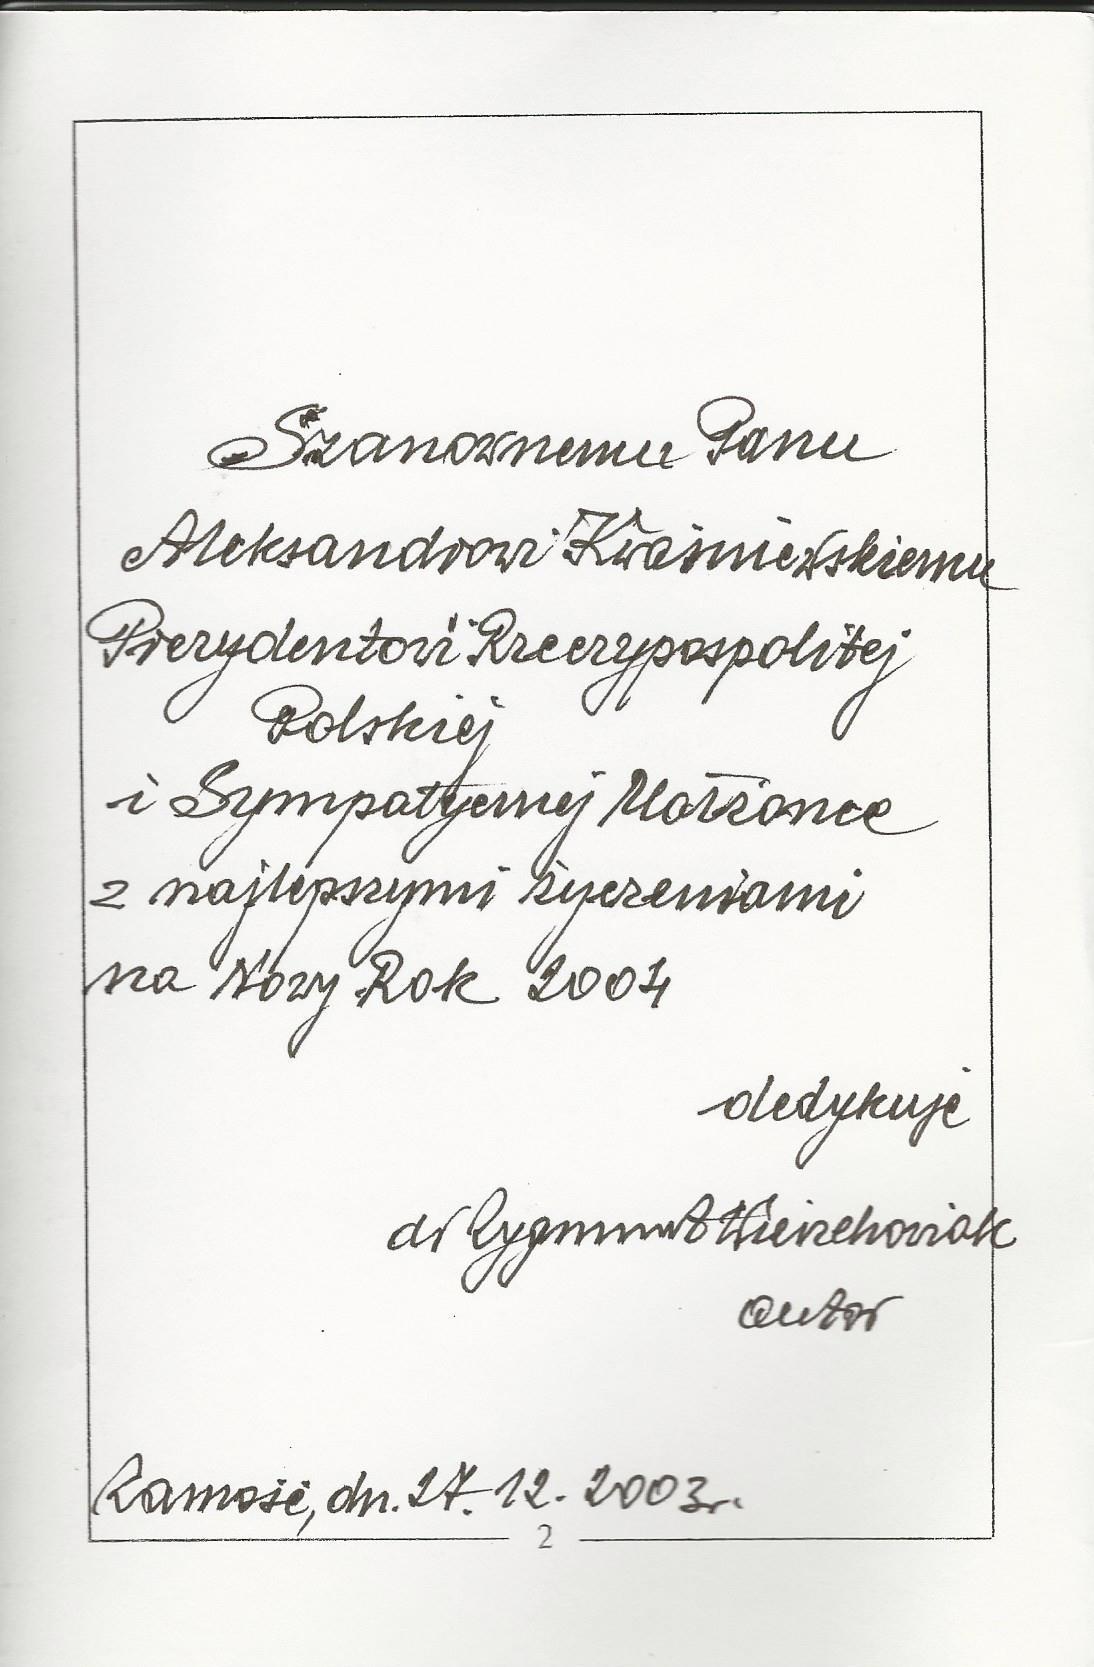 Szanownemu Panu
Aleksandrowi Kwaśniewskiemu
Prezydentowi Rzeczypospolitej
Polskiej
i Sympatycznej Małżonce
z najlepszymi życzeniami
na Nowy Rok 2004
dedykuje
dr Zygmunt Wierzchowiak
autor
Zamość, dn. 27. 12. 2003 r.
2